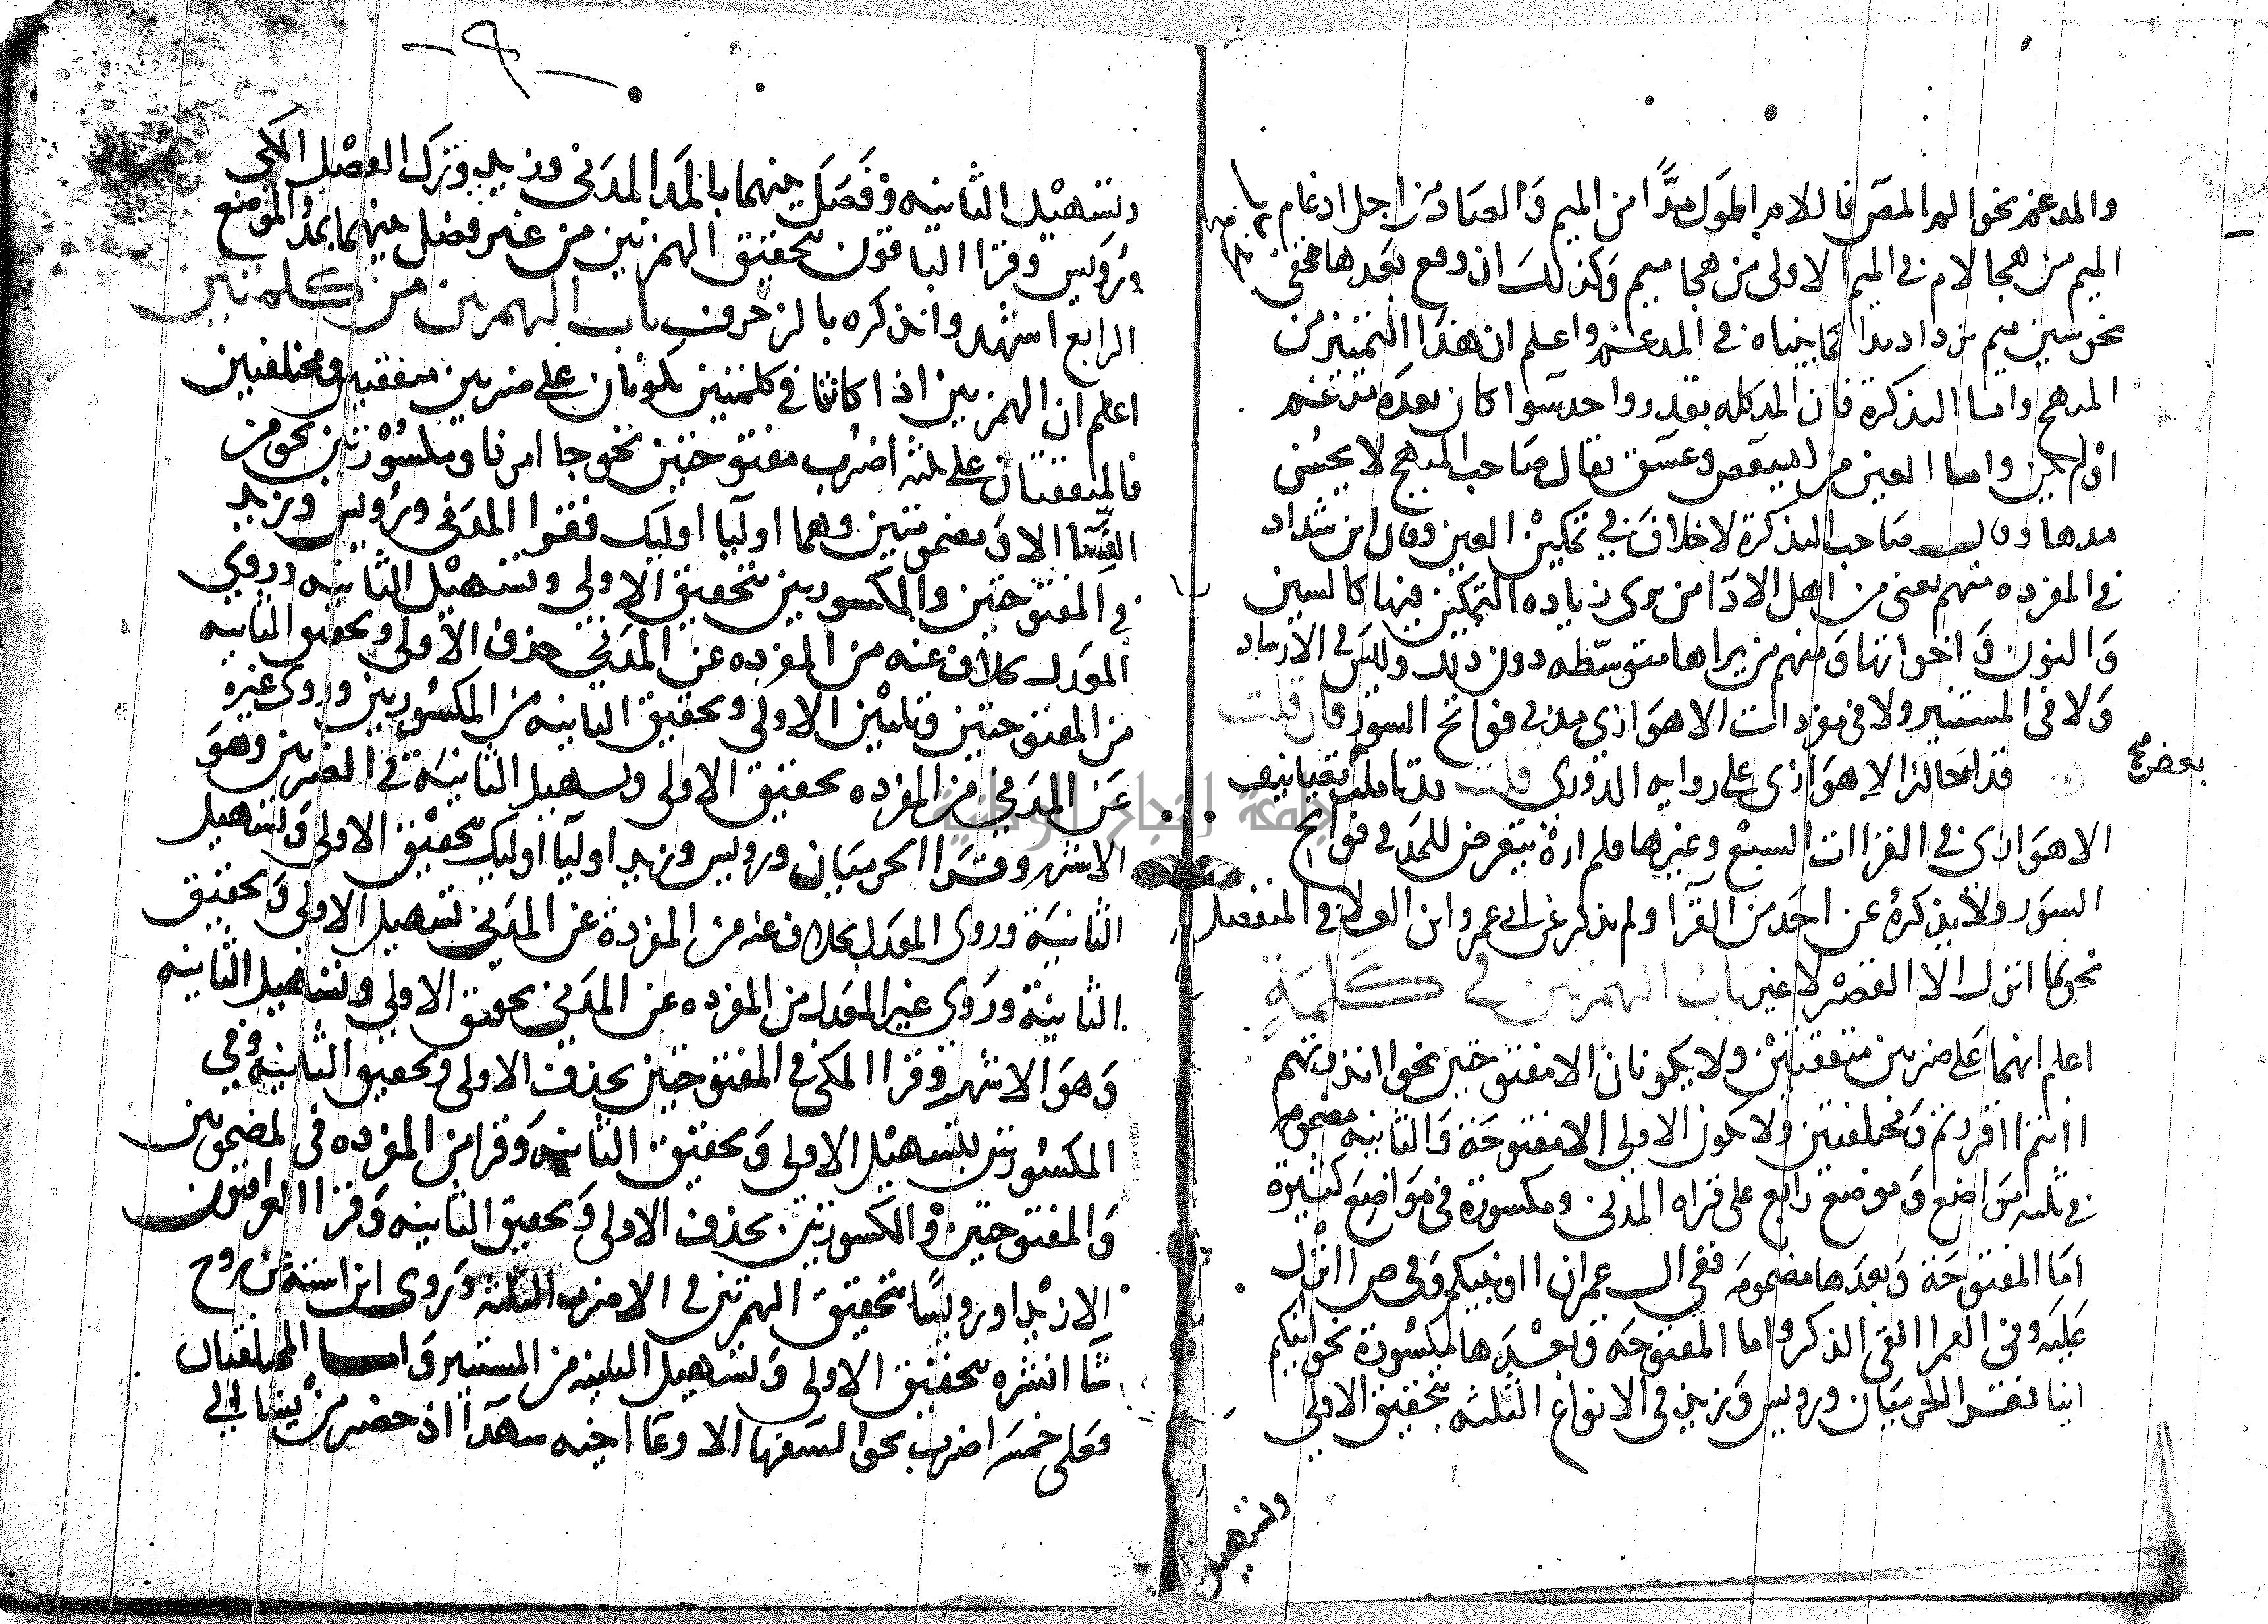 والمدغم نحو الم المص فاللام اطول مدًّا من الميم وَالصاد من اجل ادغام
الميم من هجا لام في الميم الاولى من هجا ميم وكذلك ان وقع بعدها مخفى
نحو سين ميم يزداد مدا كما بيناه في المدغم واعلم ان هذا التمييز من
المبهج واما التذكرة فان المد كله بقدر واحد سوا كان بعده مدغم
او لم يكن واما العين من كهيعص وعسق فقال صاحب المبهج لا يحسن
مدها وقال صاحب التذكرة لا خلاف في تمكين العين وقال ابن شداد
في المفرده منهم يعنى من اهل الادا من يرى زياده التمكين فيها كالسين
وَالنون وَاخواتها وَمنهم من يراها متوسّطه دون ذلك وليس في الارشاد
وَلا في المستنير ولا في مفردات الاهوازي مد في فواتح السور فان قلت
بعضهم
قد الاهوازى على روايه الدوري قلت قد تاملت تصانيف
الاهوازى في القراات السبع وغيرها فلم ارهُ يتعرض للمد في فواتح
السوَر ولا يذكرهُ عن احَد من القرآ ولم يذكر عن ابي عمرو ابن العلا في المنفصل
نحو بما انزل الا القصر لا غير باب الهمزتين في كَلِمَةٍ
اعلم انهما عَلى ضربين متفقتيْن ولا يكونان الا مفتوحتين نحو اانذرتهم
اانتم ااقررتم وَمختلفتين ولا تكون الاولى الا مفتوحَة وَالثانيه مضمومه
في ثلثه مَوَاضع وَموضع رَابع على قراه المدنى ومكسورة في مَوَاضِعَ كثيرة
امَا المفتوحَة وَبعدَها مضمومه ففي ال عمران ااونبيكم وَفي ص اانزل
عَليه وفى القمر االقى الذكر واما المفتوحَه وَبعْدَها مكسُورة نحو اينكم
اينا فقرا الحرميَان ورويس وَزيد في الانواع الثلثه بتحقيق الاولى
وتسهيل
وتسْهيْل الثانيه وَفَصَلَ بينهما بالمد المدَني وزيد وترَك الفصْل المكى
ورُوَيس وقرا الباقون بتحقيق الهمزتين من غير فصل بينهما بمد والموضع
الرابع اشهدوا نذكره بالزخرف باب الهمزتين من كلمتين
اعلم ان الهمزتين اذا كانتا في كلمتين تكونان على ضربين متفقتين ومختلفتين
فالمتفقتان على ثلثه اضرُب مفتوحتين نحو جا امرنا ومكسُوْرتين نحو من
النِّسَآ الا وَمضمومتين وهما اوليآ اوليك فقرا المدَنى ورُويس وزيد
في المفتوحتين والمكسورتين بتحقيق الاولى وتسْهيْل الثانيه وروى
المعَدل بخلاف عنه من المفرده عن المدَني حذف الاولى وتحقيق الثانيه
من المفتوحتين وتليْين الاولى وتحقيق الثانيه من المكسُورتين وروى غيره
عَن المدَني من المفرده تحقيق الاولى وتسهيل الثانيَة في الضربين وهوَ
الاشهر وقرَا الحرميَان ورويس وزيد اوليآ اوليك بتحقيق الاولى وَتسْهيل
الثانيَة وروى المعَدل بخلاف عنه من المفردة عن المدَني تسْهيل الاولى وَتحقيق
الثانيَة ورَوى غير المعَدل من المفرده عن المدَني تحقيق الاولى وتسْهيل الثانيه
وَهوَ الاشهر وَقرا المكى في المفتوحتين بحذف الاولى وتحقيق الثانيه وفي
المكسُورتين بتسهيْل الاولى وَتحقيق الثانيه وَقرا من المفرده في المضمومتين
وَالمفتوحتين وَالمكسورتين بحذف الاولى وَتحقيق الثانيه وَقرا العراقيون
الا زيْدا ورويسًا بتحقيق الهمزتين في الاضرب الثلثه وَروى ابن اشته عن روح
شآ انشره بتحقيق الاولى وَتسْهيل الثانيه من المستنير وَاما المختلفتان
فعلى خمسَه اضرب نحو السفها الا وعآ اخيه شهدآ اذ حضر من يشا الى